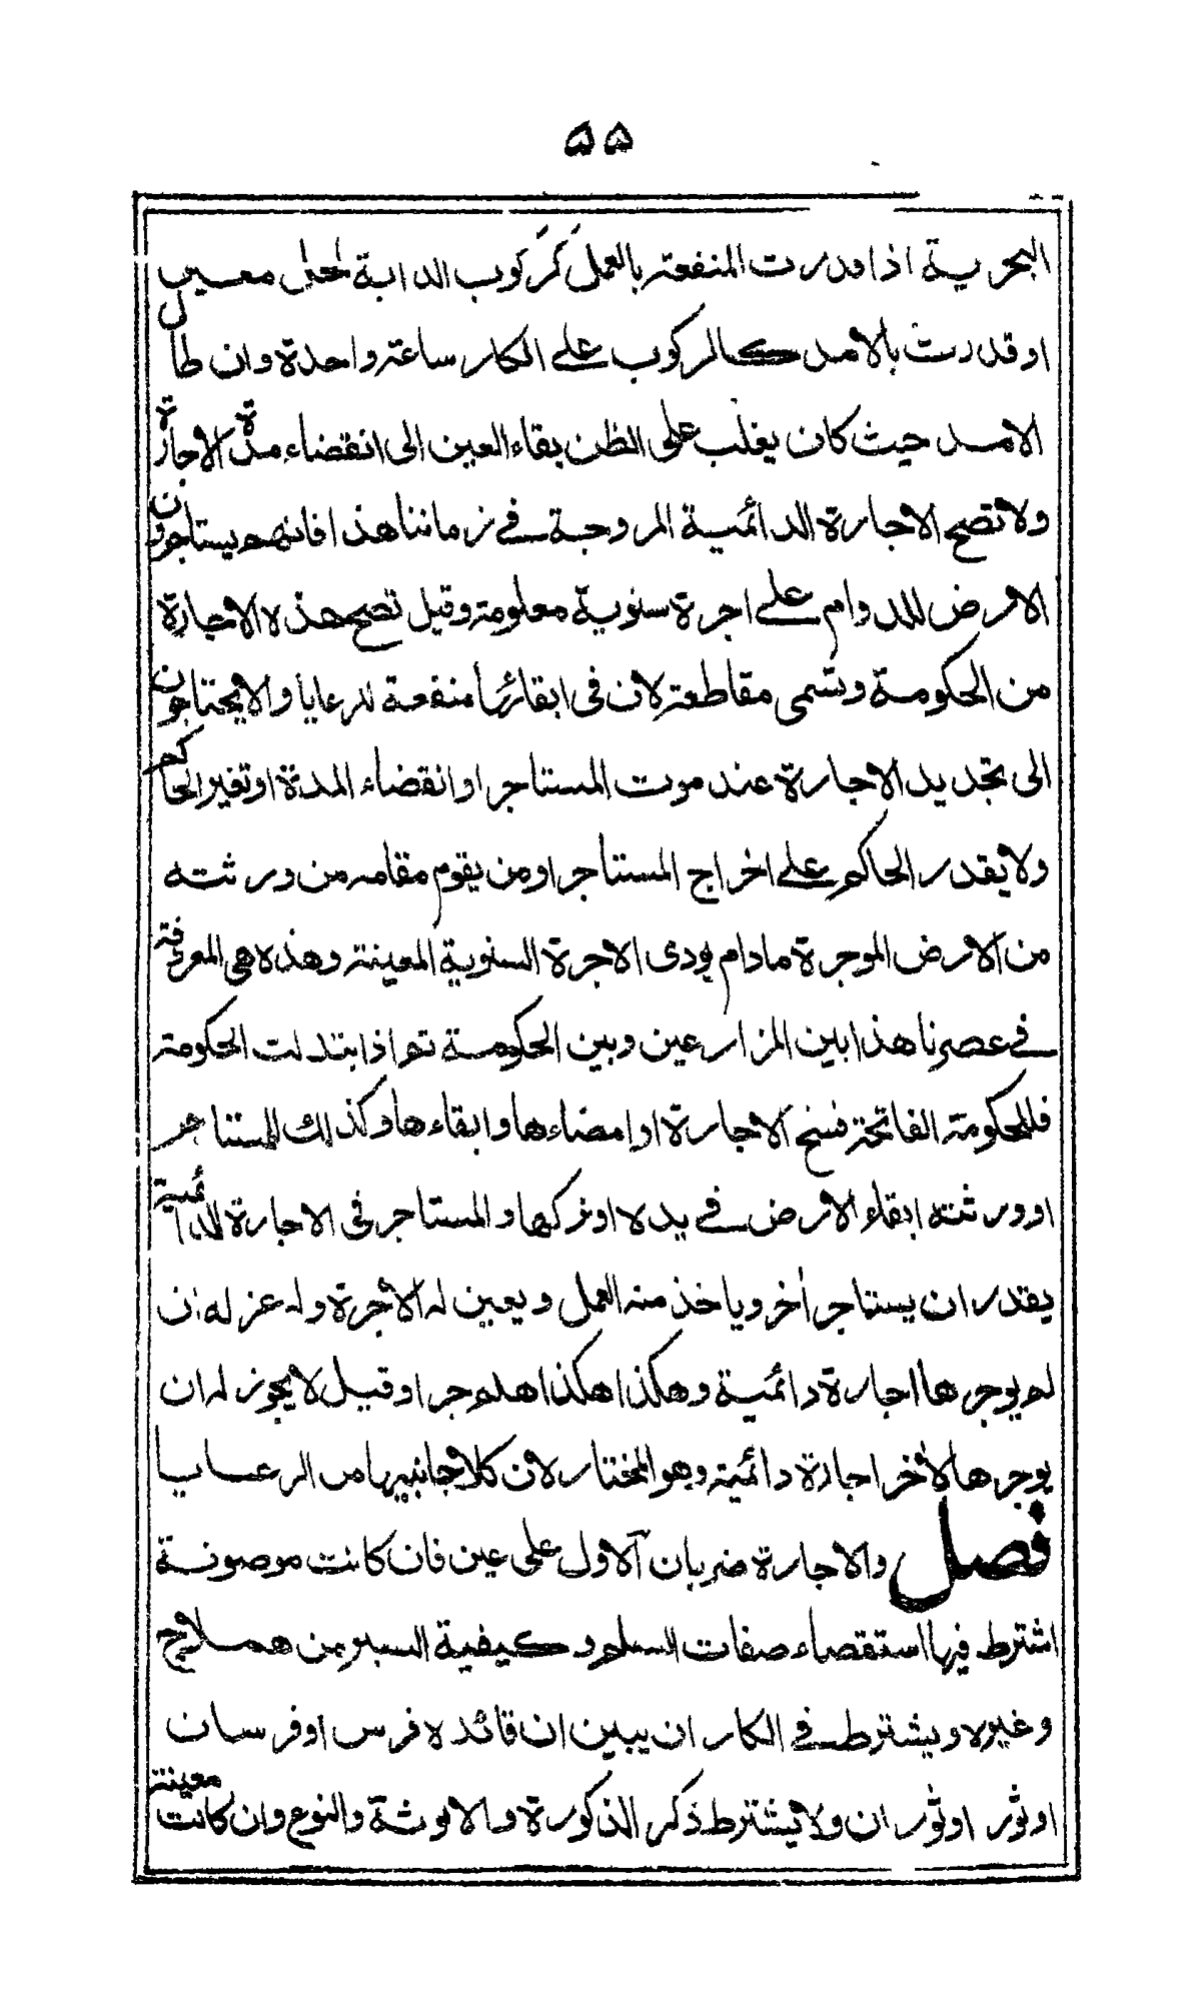 ٥٥
البحرية اذا قدرت المنفعة بالعمل كركوب الدابة لمحل معين
او قدرت بالامد كالركوب على الكار ساعة واحدة وان طال
الامد حيث كان يغلب على الظن بقاء العين الى انقضاء مدة الاجارة
ولا تصح الاجارة الدائمية المروجة فى زماننا هذا فانهم يستاجرون
الارض للدوام على اجرة سنوية معلومة وقيل تصح هذه الاجارة
من الحكومة وتسمى مقاطعة لان فى ابقائها منفعة للرعايا والا يحتاجون
الى تجديد الاجارة عند موت المستاجر او انقضاء المدة او تغير الحاكم
ولا يقدر الحاكم على اخراج المستاجر او من يقوم مقامه من ورثته
من الارض الموجرة مادام يودى الاجرة السنوية المعينة وهذه هى المعرفة
فى عصرنا هذا بين المزارعين وبين الحكومة نعم اذا ابتدلت الحكومة
فللحكومة الفاتحة فسخ الاجارة او امضاءها وابقاءها وكذلك للمستاجر
او ورثته ابقاء الارض فى يده او تركها والمستاجر فى الاجارة الدائمية
يقدر ان يستاجر أخر وياخذ منه العمل ويعين له الأجرة وله عزله ان
لم يوجرها اجارة دائمية وهكذا هكذا هلم جرا وقيل لا يجوز له ان
يوجرها لأخر اجارة دائمية وهو المختار لان كلا جانبيها من الرعايا
فصل والاجارة ضربان الاول على عين فان كانت موصوفة
اشترط فيها استقصاء صفات السلم وكيفية السير من هملاج
وغيره ويشترط فى الكار ان يبين ان قائده فرس او فرسان
او ثور او ثوران ولا يشترط ذكر الذكورة والانوثة والنوع وان كانت معينة